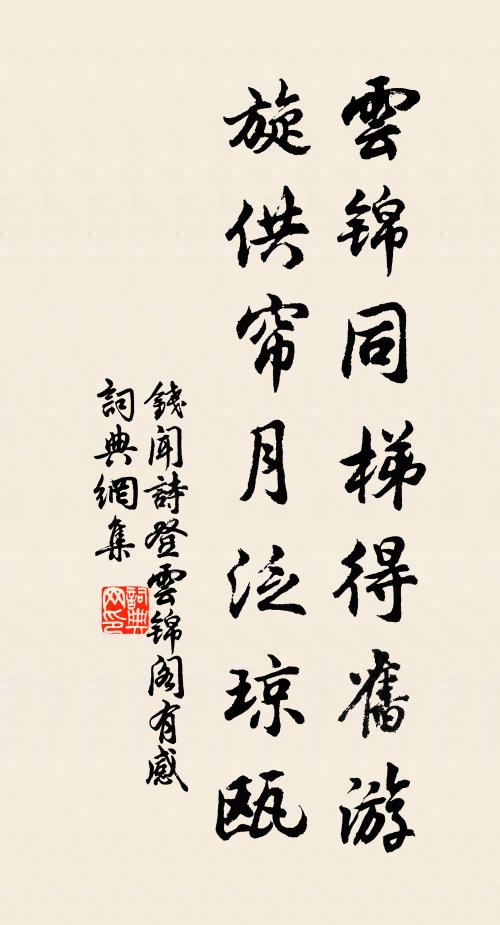 雲錦同梯得舊游
旋供帘月泛琼甌
錢聞詩登雲錦阁有感
詞典網集
詞典网印